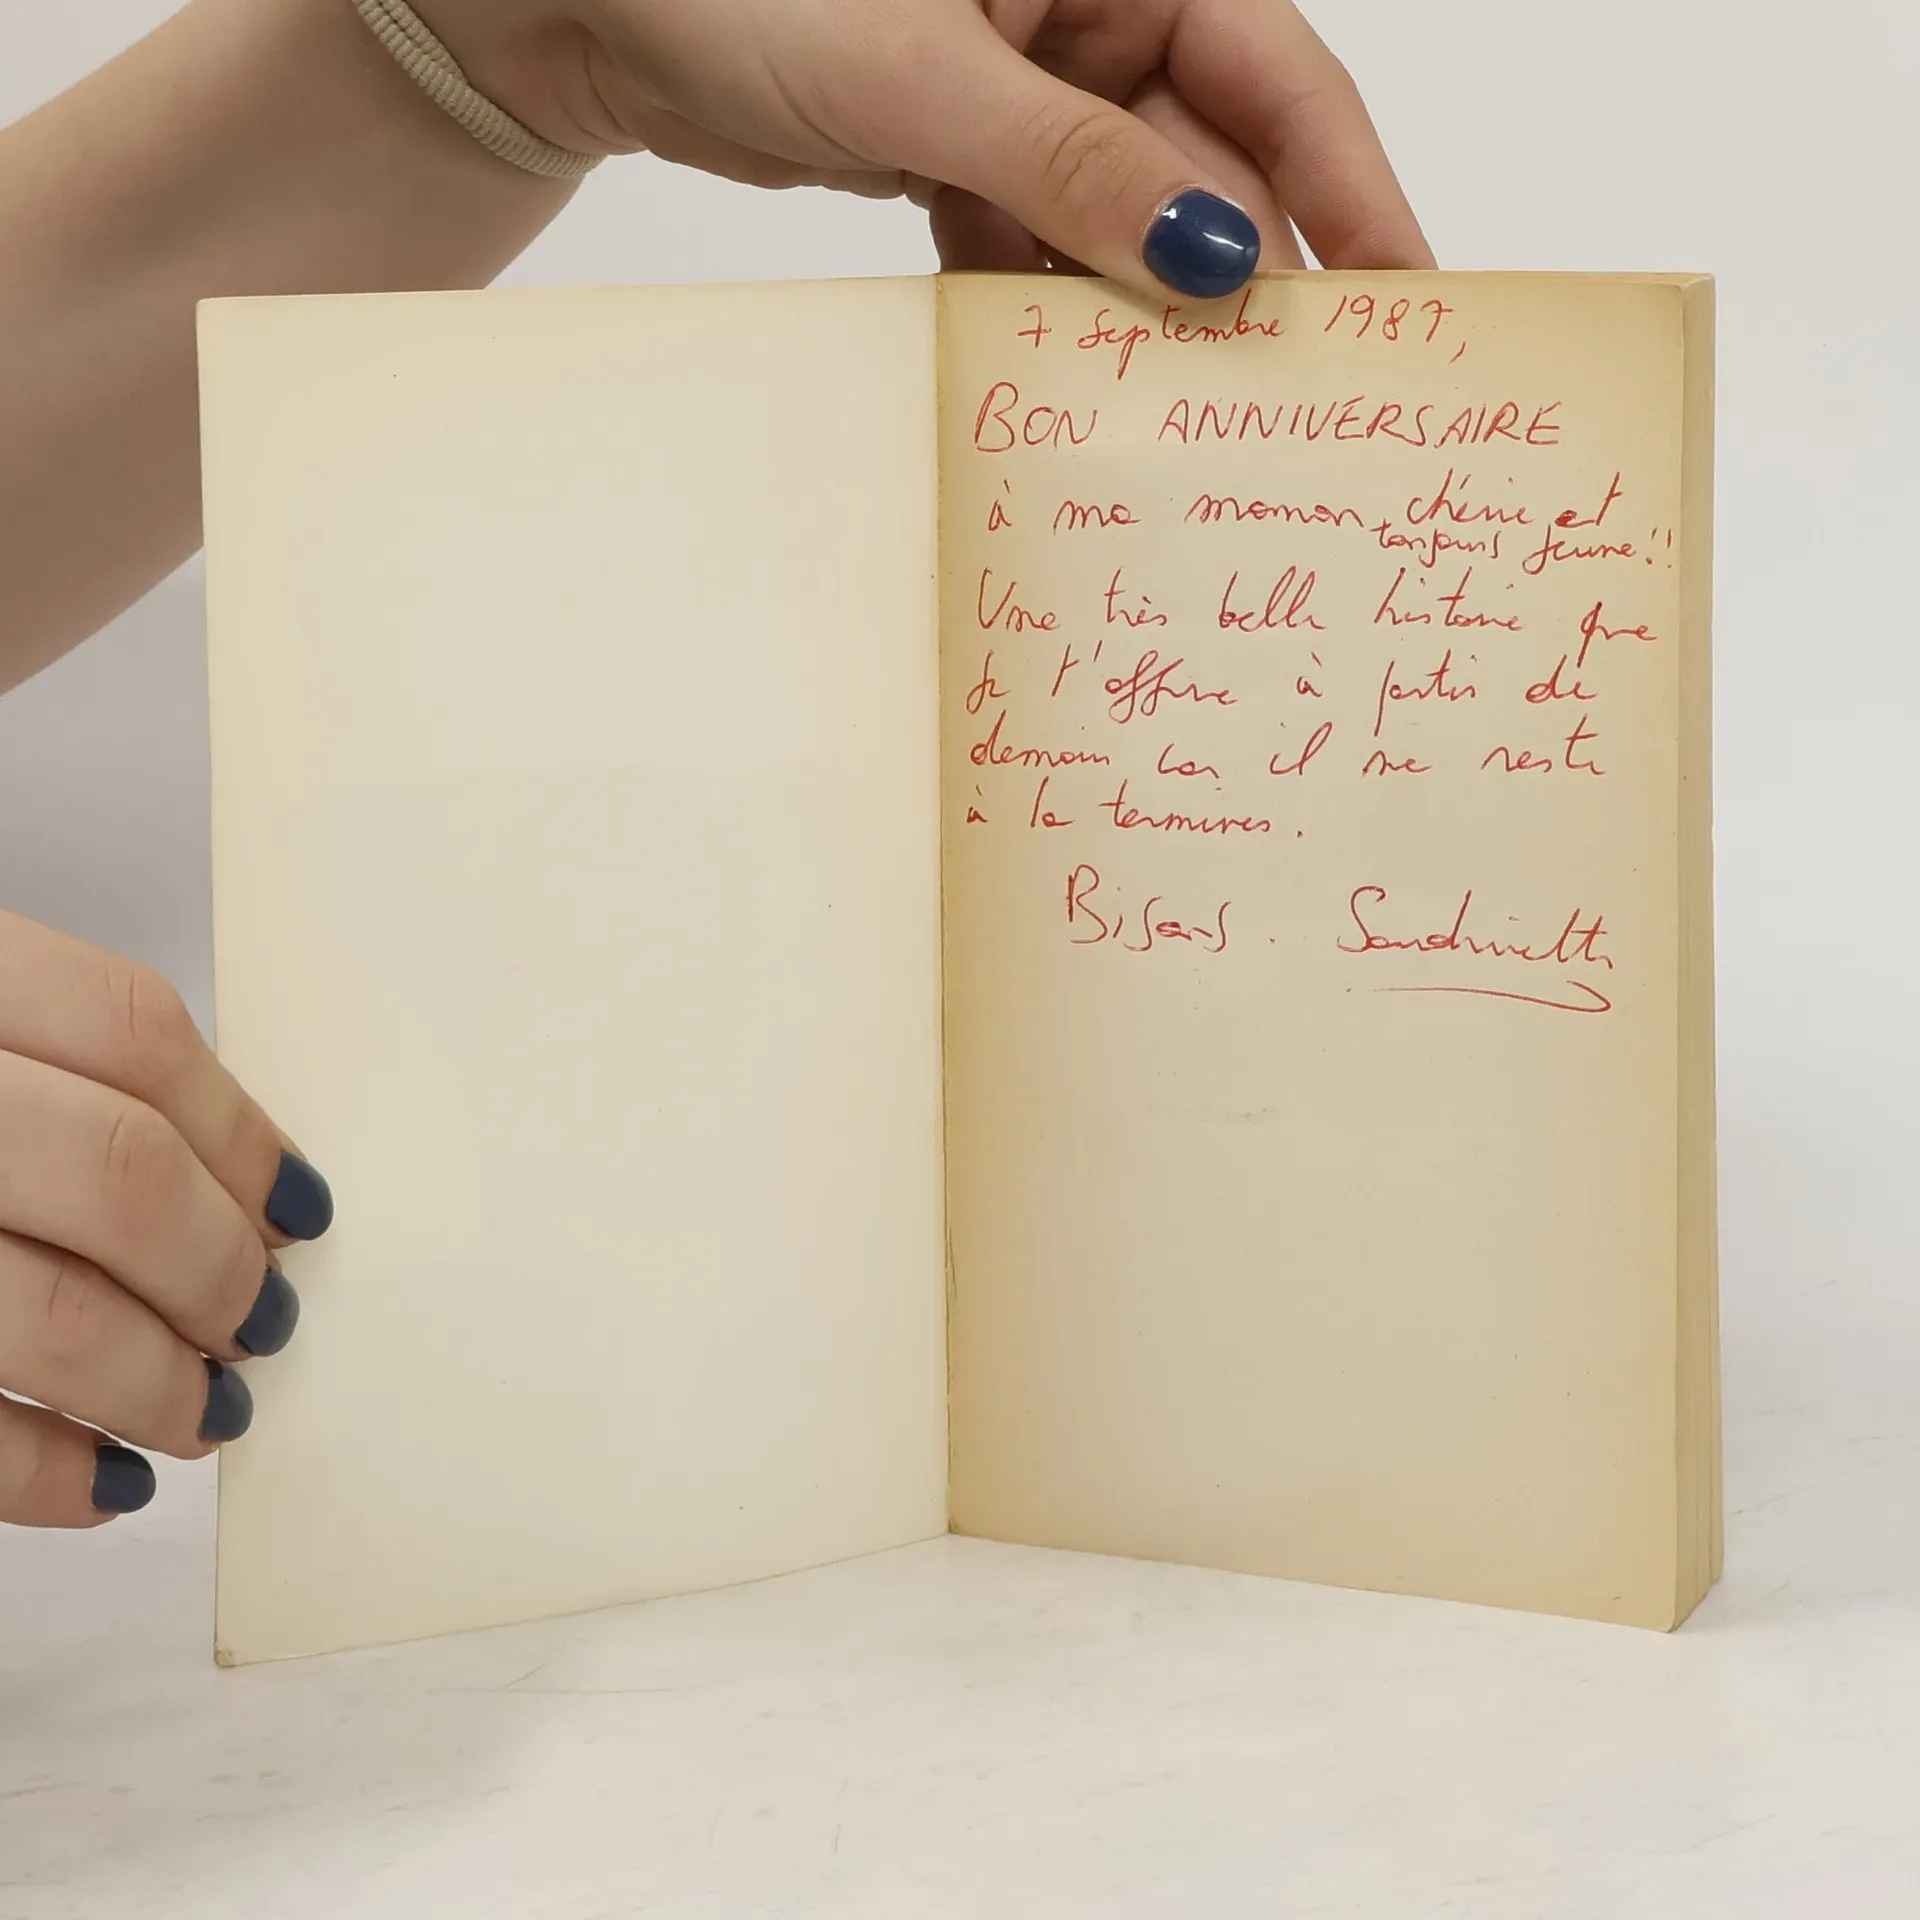 7 Septembre 1987,
BON ANNIVERSAIRE
à ma maman chérie et
toujours jeune !!
Une très belle histoire que
je t'offre à partir de
demain car il me reste
à la terminer.
Bisous. Sandrinette